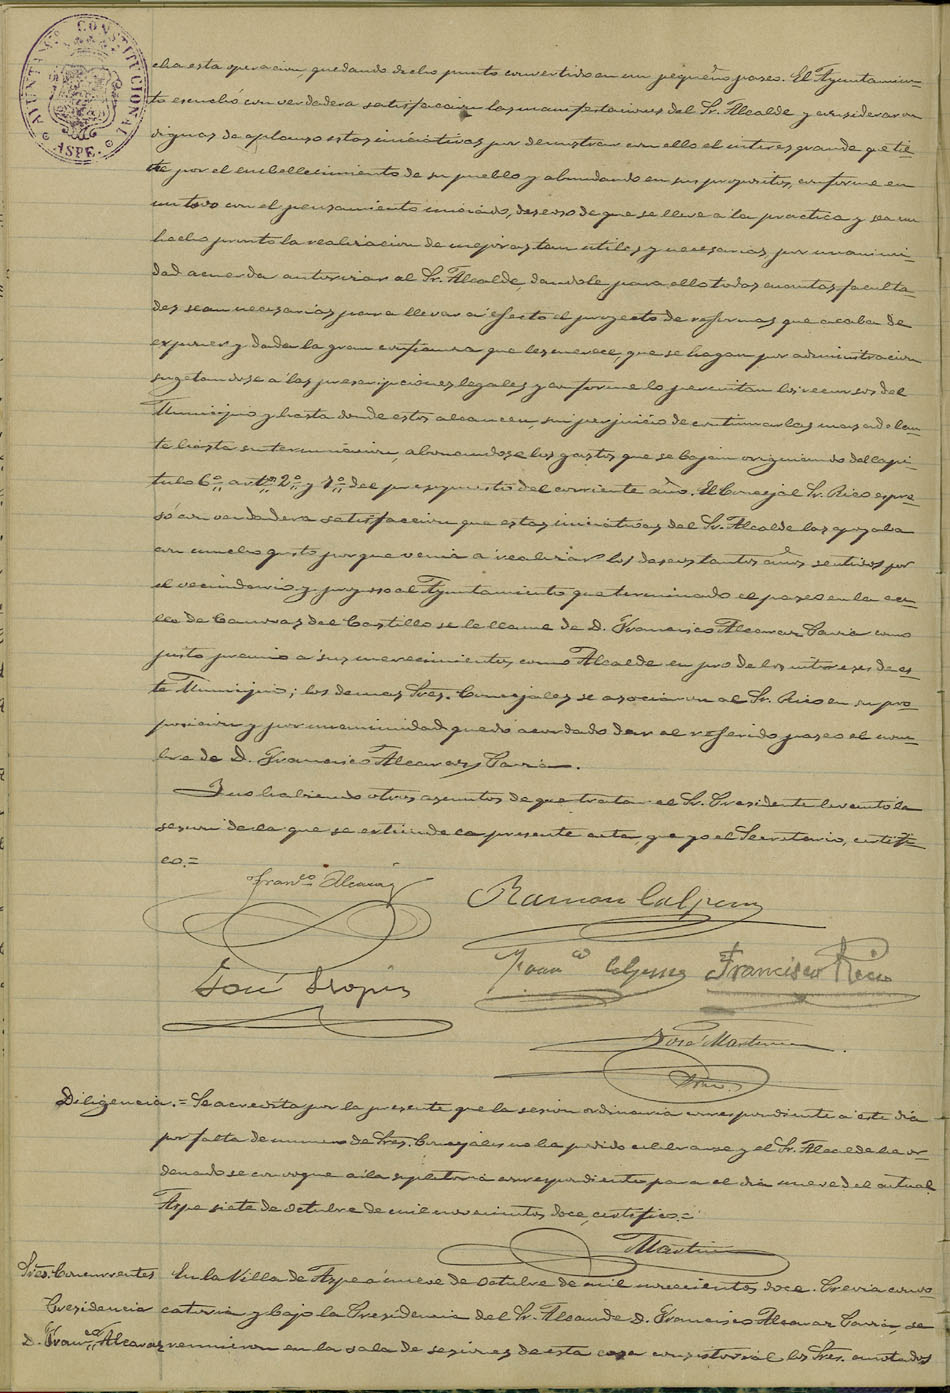 AYUNTAMTO CONSTITUCIONAL
ASPE.
cha esta operacion, quedando dicho punto convertido en un pequeño paseo. El Ayuntamien-
to escuchó con verdadera satisfacción las manifestaciones del Sr. Alcalde y consideraron
dignas de aplauso estas iniciativas por demostrar con ello el interes grande que tie-
ne por el embellecimiento de su pueblo y abundando en sus propositos, conforme en
un todo con el pensamiento iniciado, deseoso de que se lleve a la practica y sea un
hecho pronto la realizacion de mejoras tan utiles y necesarias, por unanimi-
dad acuerda autorizar al Sr. Alcalde, dandole para ello todas cuantas faculta-
des sean necesarias para llevar a efecto el proyecto de reformas que acaba de
exponer y dada la gran confianza que les merece, que se hagan por administracion
sugetandose a las prescripciones legales y conforme lo permitan los recursos del
Municipio y hasta donde estos alcancen, sin perjuicio de continuarlas mas adelan-
te hasta su terminacion, abonandose los gastos que se bajan originando del capi-
tulo 6º artºs 2º y 7º del presupuesto del corriente año. El Concejal Sr. Rico expre-
só con verdadera satisfaccion que estas iniciativas del Sr. Alcalde las apoyaba
con mucho gusto porque venia a realizar los deseos tantos años sentidos por
el vecindario y propuso al Ayuntamiento que terminado el paseo en la ca-
lle de Canovas del Castillo se le llame de D. Francisco Alcaraz Pavia como
justo premio a sus merecimientos como Alcalde en pro de los intereses de es-
te Municipio; los demas Sres. Concejales se asociaron al Sr. Rico en su pro-
posicion y por unanimidad quedó acordado dar al referido paseo el nom-
bre de D. Francisco Alcaraz Pavia.
Y no habiendo otros asuntos de que tratar el Sr. Presidente levantó la
sesion de la que se extiende la presente acta, que yo el Secretario, certifi-
co.=
Franco Alcaraz
Ramon Calpena
José
Franco Calpena Francisco Rico
José Martinez
Srio.
Diligencia.= Se acredita por la presente que la sesion ordinaria correspondiente a este dia
por falta de numero de Sres. Concejales no ha podido celebrarse y el Sr. Alcalde ha or-
denado se convoque a la supletoria correspondiente para el dia nueve del actual.
Aspe siete de Octubre de mil novecientos doce, certifico.=
Martinez
Sres. Concurrentes En la Villa de Aspe a nueve de Octubre de mil novecientos doce. Previa convo-
Presidencia catoria y bajo la Presidencia del Sr. Alcalde D. Francisco Alcaraz Pavia, se
D. Franco Alcaraz reunieron en la sala de sesiones de esta casa consistorial los Sres. anotados